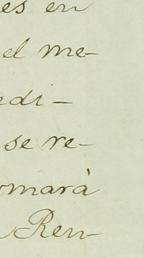 es en
el me-
edi-
se re-
omará
Ren-